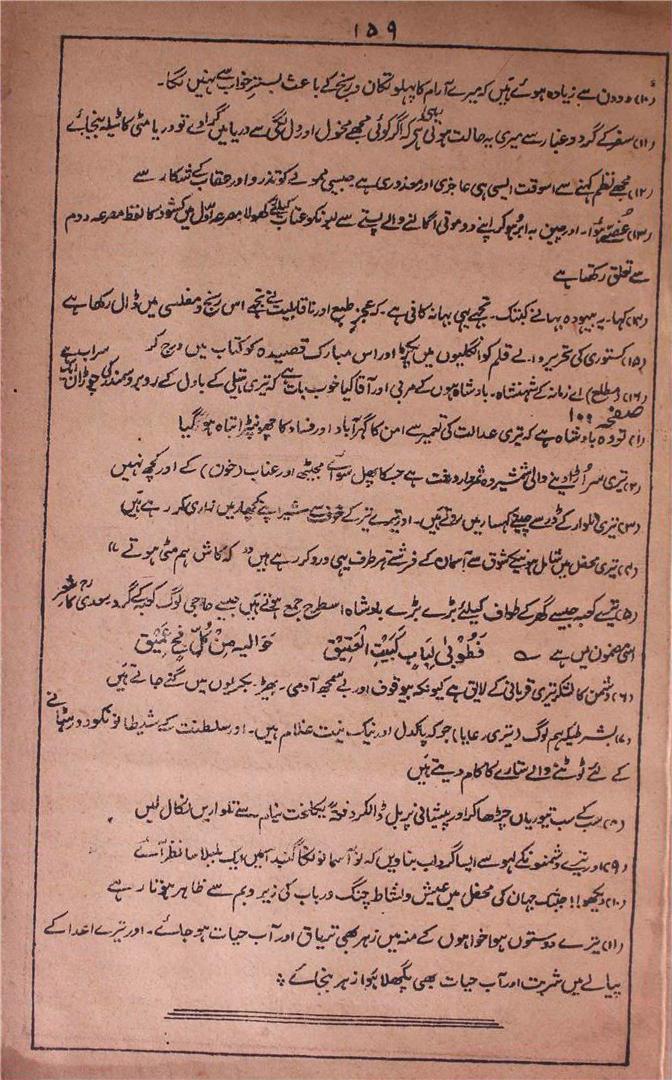 ۱۵۹
(۱۰) دو دن سے زیادہ ہوئے ہیں کہ میرے آرام کا پہلو تکان و رنج کے باعث بستر خواب سے نہیں لگا۔
(۱۱) سفر کے گرد و غبار سے میری یہ حالت ہوئی ہے کہ اگر کوئی مجھے مخول اور دل لگی سے دریا میں گراوے تو دریا مٹی کا ٹیلہ بنجائے
(۱۲) مجھے نظم کہنے سے اسوقت ایسی ہی عاجزی اور معذوری ہے جیسی ممولے کو تذرو اور عقاب کے شکار سے
(۱۳) غصے ہوا۔ اور چین بہ ابرو ہو کر اپنے دو موتی اگالنے والے پستے سے لبونکو عتاب کیلئے کھولا مصرعہ اول میں کشود کا لفظ مصرعہ دوم
سے تعلق رکھتا ہے
(۱۴) کہا۔ یہ بیہودہ بہانے کب تک۔ تجھے یہی بہانہ کافی ہے۔ کہ عجز طبع اور ناقابلیت نے تجھے اس رنج و مفلسی میں ڈال رکھا ہے
(۱۵) کستوری کی تحریر والے قلم کو انگلیوں میں پکڑ اور اس مبارک قصیدہ کو کتاب میں درج کر
(۱۶) (مطلع) اے زمانہ کے شہنشاہ۔ بادشاہوں کے مربی اور آقا کیا خوب بات ہے کہ تیری ہتیلی کے بادل کے روبرو سمندر کی چوڑان ایک سراب ہے
صفحہ ۱۰۰
(۱) تو وہ بادشاہ ہے کہ تیری عدالت کی تعمیر سے امن کا گہر آباد اور فساد کا جھونپڑا تباہ ہو گیا
(۲) تیری سر اڑا دینے والی شمشیر وہ ثمردار درخت ہے جسکا پھل سوائے مجیٹھ اور عناب (خون) کے اور کچھ نہیں
(۳) تیری تلوار کے ڈر سے چیتے کہسار میں روتے ہیں۔ اور تیرے تیر کے خوف سے شیر اپنے کچھار میں زاری کر رہے ہیں
(۴) تیری محفل میں شامل ہونیکے شوق سے آسمان کے فرشتے ہر طرف یہی ورد کر رہے ہیں "کہ کاش ہم مٹی ہوتے"
(۵) تیرے کعبہ جیسے گھر کے طواف کیلئے بڑے بڑے بادشاہ اسطرح جمع ہوتے ہیں جیسے حاجی لوگ کعبہ کے گرد سعدی کا شعر
اسی مضمون میں ہے ؎ فَطُوْبیٰ لِبَابٍ کَبَیْتِ الْعَتِیْقِ حَوَالِیہِ مِنْ کُلِّ فَجٍّ عَمِیْق
(۶) دشمن کا لشکر تیری قربانی کے لایق ہے کیونکہ بیوقوف اور بے سمجھ آدمی۔ بھیڑ۔ بکریوں میں گنے جاتے ہیں
(۷) بشرطیکہ ہم لوگ (تیری رعایا) جو کہ پاکدل اور نیک نیت غلام ہیں۔ اور سلطنت کے شیطانونکو دور ہٹانے
کے لئے ٹوٹنے والے ستارے کا کام دیتے ہیں
(۸) سب کے سب تیوریاں چڑھا کر اور پیشانی پر بل ڈالکر دفعۃً یکلخت نیام سے تلواریں نکال لیں
(۹) اور تیرے دشمنونکے لہو سے ایسا گرداب بناویں کہ نو آسمانونکا گنبد اسمیں ایک بلبلا سا نظر آئے
(۱۰) دیکھو!! جبتک جہان کی محفل میں عیش و نشاط چنگ و رباب کی زیر و بم سے ظاہر ہوتا رہے
(۱۱) تیرے دوستوں ہواخواہوں کے منہ میں زہر بھی تریاق اور آب حیات ہو جائے۔ اور تیرے اعدا کے
پیالے میں شربت اور آب حیات بھی پگھلا ہوا زہر بنجائے